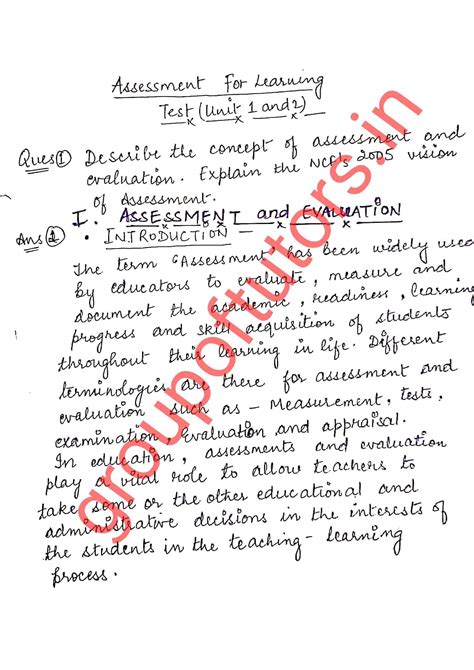 Assessment For Learning
Test (Unit 1 and 2)
Ques① Describe the concept of assessment and
evaluation. Explain the NCF's 2005 vision
of Assessment.
I. ASSESSMENT and EVALUATION
Ans① • INTRODUCTION -
The term 'Assessment' has been widely used
by educators to evaluate, measure and
document the academic, readiness, learning
progress and skill acquisition of students
throughout their learning in life. Different
terminologies are there for assessment and
evaluation such as - Measurement, tests,
examination, Evaluation and appraisal.
In education, assessments and evaluation
play a vital role to allow teachers to
take some or the other educational and
administrative decisions in the interests of
the students in the teaching - learning
process.
groupoftutors.in